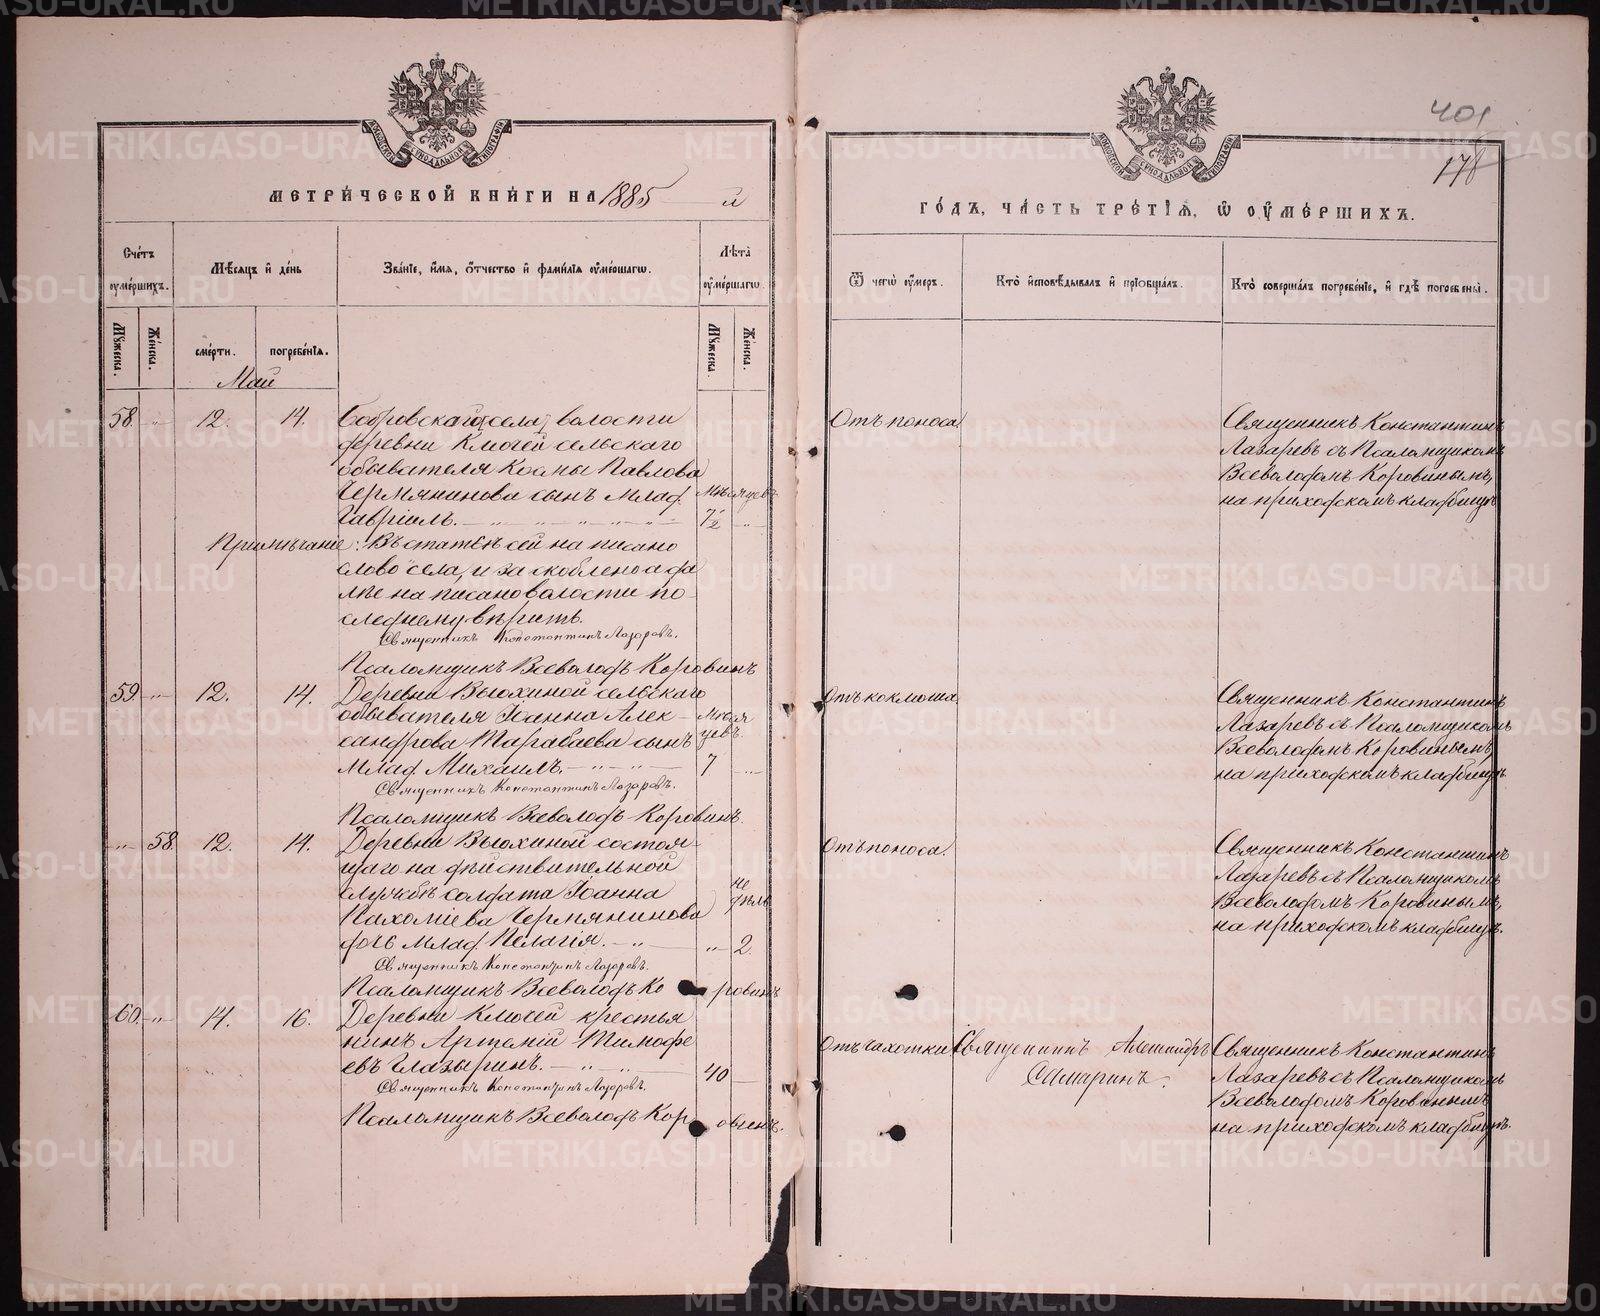 МЕТРИЧЕСКОЙ КНИГИ НА 1885 й
Счетъ умершихъ.
Мѣсяцъ и день
Званіе, имя, отчество и фамилія умершагѡ.
Лѣта умершагѡ.
Мужеска.
Женска.
смерти.
погребенія.
Мужеска.
Женска.
Май
58. " 12. 14. Бобровскаго села, волости
деревни Ключей сельскаго
обывателя Космы Павлова
Чермянинова сынъ млад. Мѣсяцевъ
Гавріилъ. 7 1/2 "
Примѣчаніе: Въ статьѣ сей на писано
слово села, и за скоблено а да
лѣе на писано волости по-
следнему вѣрить.
Священникъ Константинъ Лазаревъ.
Псаломщикъ Всеволодъ Коровинъ
59. " 12. 14. Деревни Вьюхиной сельскаго
обывателя Іоанна Алек- Мѣся
сандрова Тарабаева сынъ цевъ.
млад. Михаилъ. 7 "
Священникъ Константинъ Лазаревъ.
Псаломщикъ Всеволодъ Коровинъ.
" 58. 12. 14. Деревни Вьюхиной состоя-
щаго на дѣйствительной
службѣ солдата Іоанна не
Пахоміева Чермянинова дѣль
дочь млад. Пелагія. " 2.
Священникъ Константинъ Лазаревъ.
Псаломщикъ Всеволодъ Ко ровинъ
60. " 14. 16. Деревни Ключей крестья
нинъ Артемій Тимофе
евъ Глазыринъ. 40
Священникъ Константинъ Лазаревъ.
Псаломщикъ Всеволодъ Кор овинъ.
401
178
ГОДЪ, ЧАСТЬ ТРЕТІЯ, Ѡ УМЕРШИХЪ.
Ѿ чегѡ умеръ.
Кто исповѣдывалъ и пріобщалъ.
Кто совершалъ погребеніе, и гдѣ погребены.
Отъ поноса
Священникъ Константинъ
Лазаревъ съ Псаломщикомъ
Всеволодомъ Коровинымъ,
на приходскомъ кладбищѣ
Отъ коклюша.
Священникъ Константинъ
Лазаревъ съ Псаломщикомъ
Всеволодомъ Коровинымъ,
на приходскомъ кладбищѣ.
Отъ поноса.
Священникъ Константинъ
Лазаревъ съ Псаломщикомъ
Всеволодомъ Коровинымъ,
на приходскомъ кладбищѣ.
Отъ чахотки
Священникъ Александръ
Смаринъ.
Священникъ Константинъ
Лазаревъ съ Псаломщикомъ
Всеволодомъ Коровинымъ
на приходскомъ кладбищѣ.
METRIKI.GASO-URAL.RU